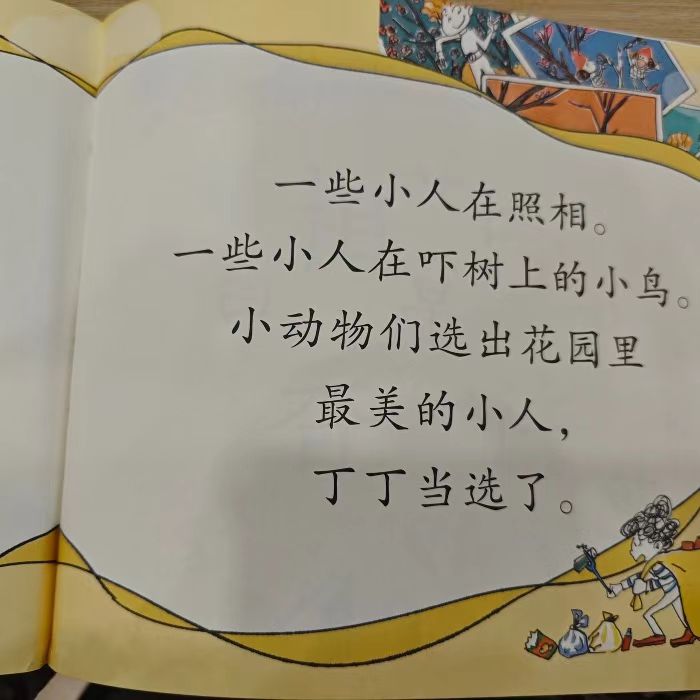 一些小人在照相。
一些小人在吓树上的小鸟。
小动物们选出花园里
最美的小人，
丁丁当选了。